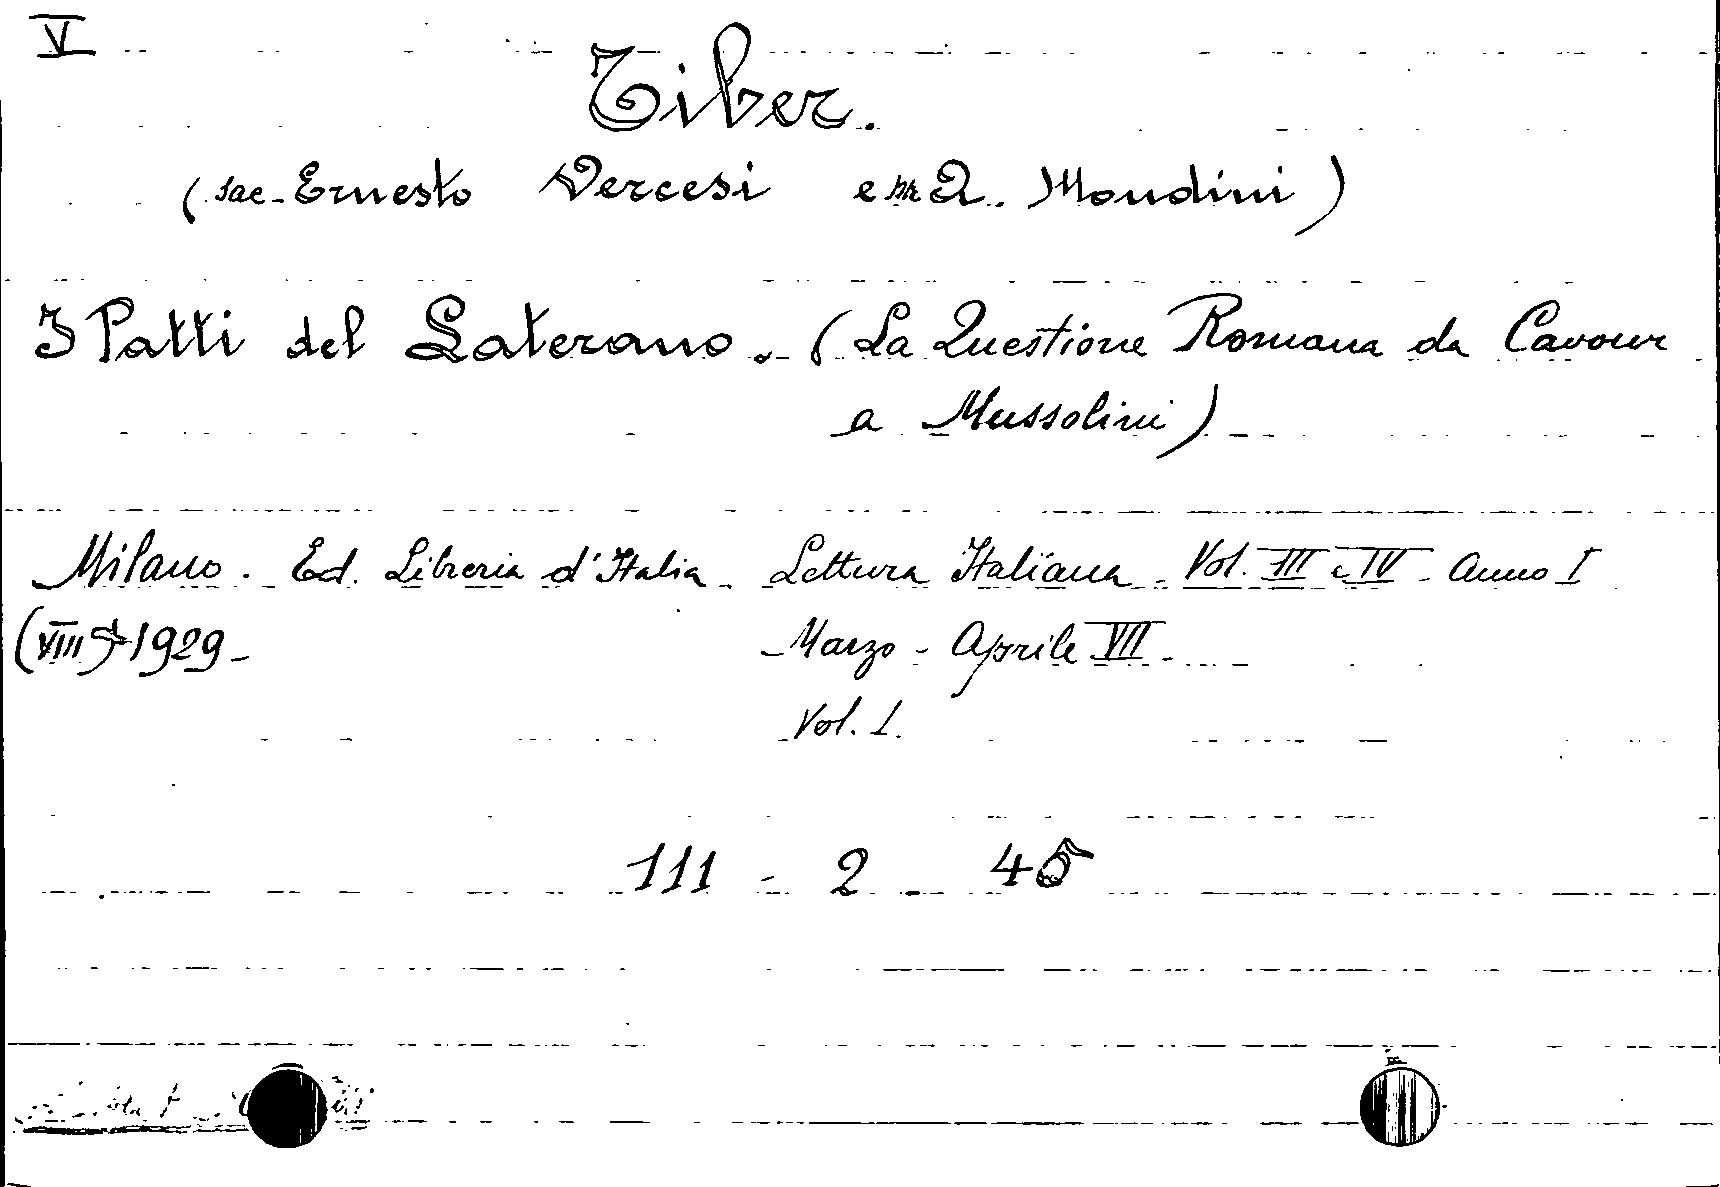 V
Tiber.
(sac. Ernesto Vercesi e A. Mondini)
I Patti del Laterano. (La Questione Romana da Cavour
a Mussolini)
Milano. Ed. Libreria d'Italia. Lettura Italiana. Vol. III e IV. Anno I
(VIII 1929 - Marzo - Aprile VII.
Vol. I.
111 - 2 - 45